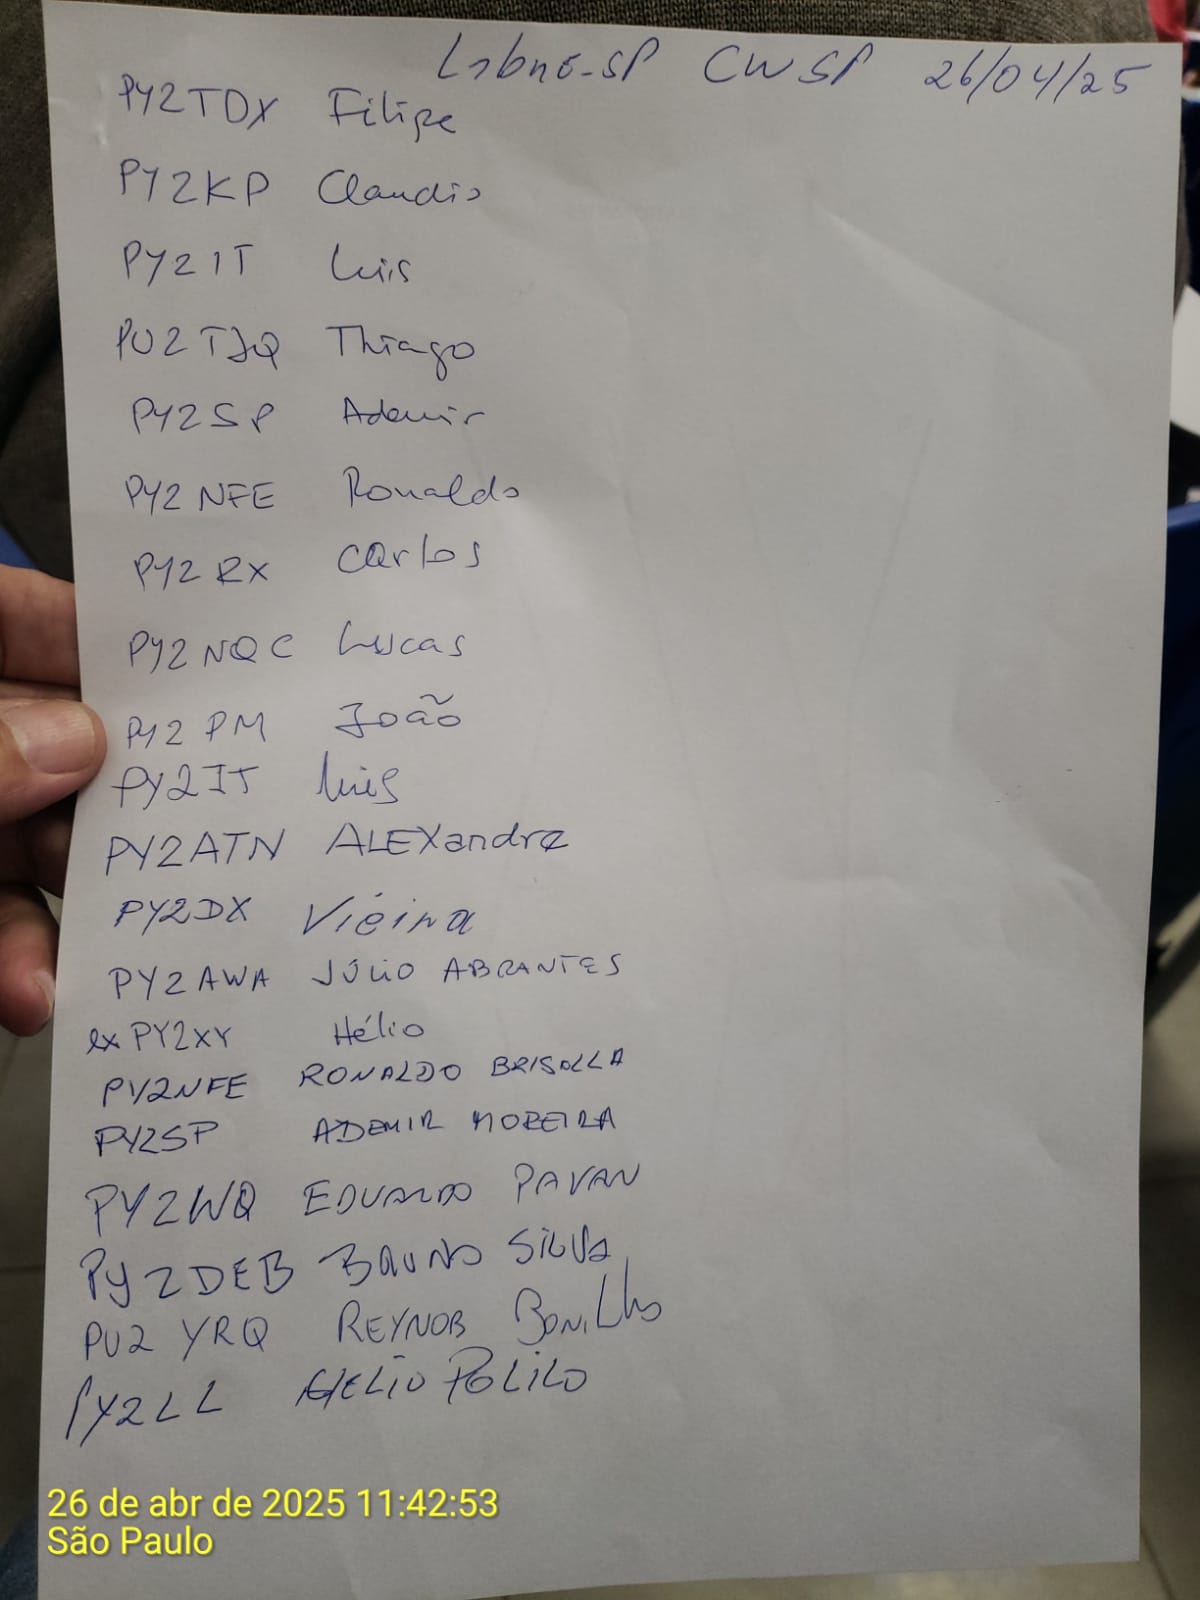 Labre-SP CWSP 26/04/25
PY2TDX Filipe
PY2KP Claudio
PY2IT Luis
PU2TJQ Thiago
PY2SP Ademir
PY2NFE Ronaldo
PY2RX Carlos
PY2NQC Lucas
PY2PM João
PY2IT Luis
PY2ATN ALEXandre
PY2DX Vieira
PY2AWA JÚLIO ABRANTES
ex PY2XY Hélio
PY2NFE RONALDO BRISOLLA
PY2SP ADEMIR MOREIRA
PY2WQ EDUARDO PAVAN
PY2DEB BRUNO SILVA
PU2YRQ REYNOB BONILho
PY2LL POLILO
26 de abr de 2025 11:42:53
São Paulo